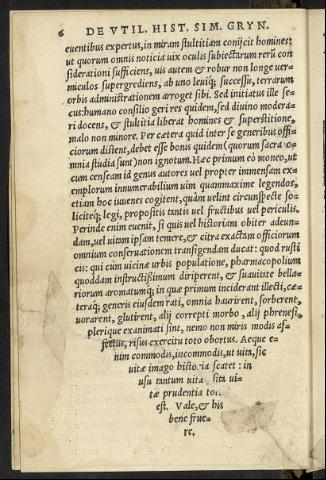 6 DE VTIL. HIST. SIM. GRYN.
euentibus expertus, in miram stultitiam conijcit homines:
ut quorum omnis noticia uix oculis subiectarum rerũ con
siderationi sufficiens, uis autem & robur non longe uer-
miculos supergrediens, ab uno leuiq; successu, terrarum
orbis administrationem arroget sibi. Sed initiatus ille se-
cus: humano consilio geri res quidem, sed diuino modera-
ri docens, & stultitia liberat homines & superstitione,
malo non minore. Per cætera quid inter se generibus offi-
ciorum distent, debet esse bonis quidem (quorum sacra o-
mnia studia sunt) non ignotum. Hæc primum eò moneo, ut
cum censeam id genus autores uel propter immensam ex-
emplorum innumerabilium uim quammaxime legendos,
etiam hoc iuuenes cogitent, quàm uelint circunspecte so-
liciteq; legi, propositis tantis uel fructibus uel periculis.
Perinde enim euenit, si quis uel historiam obiter adeun-
dam, uel uitam ipsam temere, & citra exactam officiorum
omnium conseruationem transigendam ducat: quod rusti
cis: qui cùm uicinæ urbis populatione, pharmacopolium
quoddam instructißimum diriperent, & suauitate bella-
riorum aromatumq; in quæ primum inciderant illecti, cæ-
teraq; generis eiusdem rati, omnia haurirent, sorberent,
uorarent, glutirent, alij correpti morbo, alij phrenesi,
plerique exanimati sint, nemo non miris modis af-
fectus, risus exercitu toto obortus. Aeque e-
nim commodis, incommodis, ut uita, sic
uitæ imago historia scatet: in
usu tantum uitæ sita ui-
tæ prudentia
est. Vale, & his
bene frue-
re.